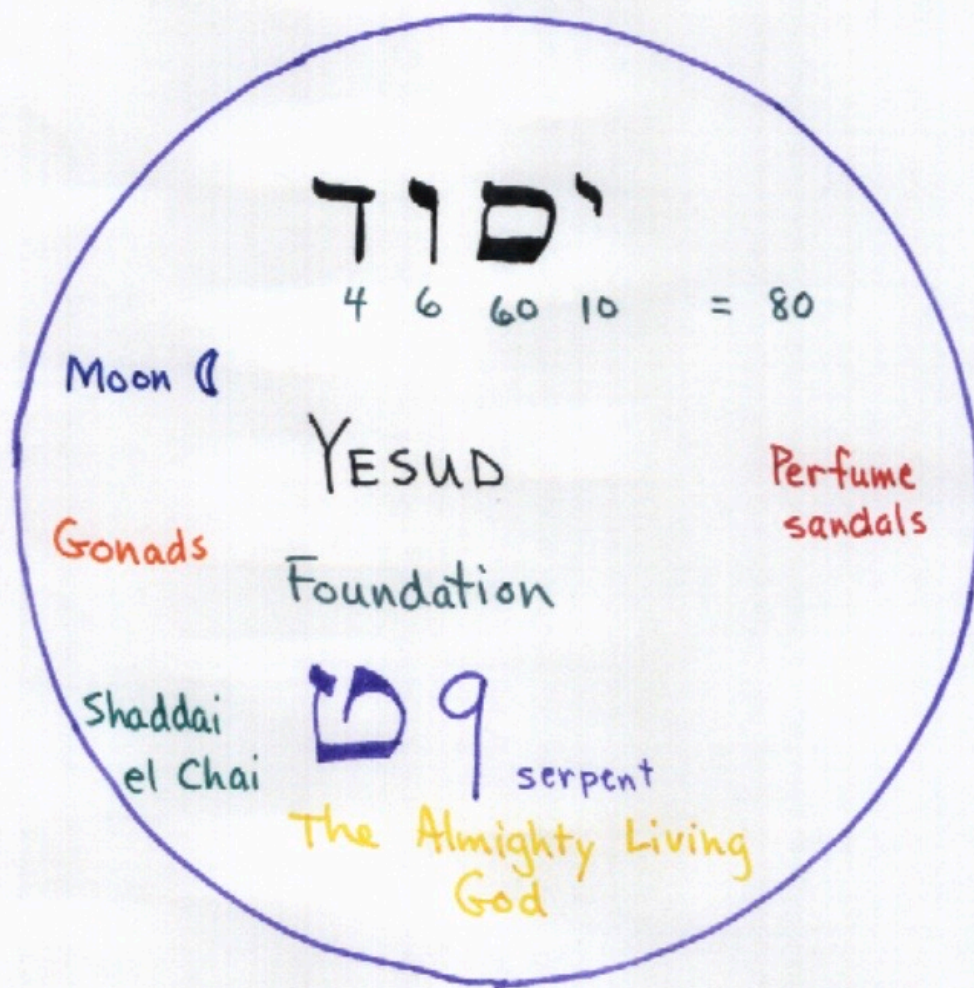 יסוד
4 6 60 10 = 80
Moon ☾
YESUD
Perfume
sandals
Gonads
Foundation
Shaddai
el Chai
ט 9 serpent
The Almighty Living
God